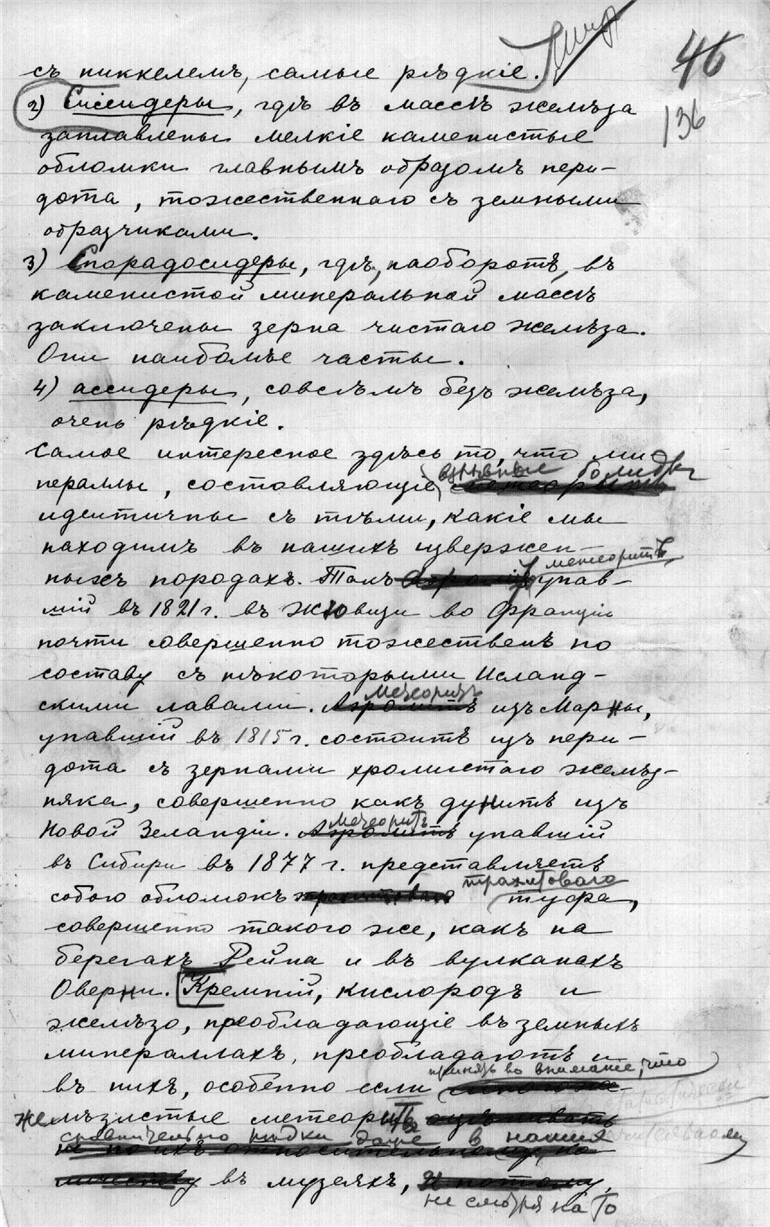 46
136
съ никкелемъ, самые рѣдкіе.
2) Сиссидеры, гдѣ въ массѣ желѣза
заплавлены мелкіе каменистые
обломки главнымъ образомъ пери-
дота, тожественнаго съ земными
образчиками.
3) Спорадосидеры, гдѣ, наоборотъ, въ
каменистой минеральной массѣ
заключены зерна чистаго желѣза.
Они наиболѣе часты.
4) ассидеры, совсѣмъ безъ желѣза,
очень рѣдкіе.
Самое интересное здѣсь то, что ми-
нераллы, составляющіе взрывные болиды
идентичны съ тѣми, какіе мы
находимъ въ нашихъ извержен-
ныхъ породахъ. Такъ метеоритъ, упав-
шій въ 1821 г. въ Жювизи во Франціи
почти совершенно тожественъ по
составу съ нѣкоторыми Исланд-
скими лавами. Метеоритъ изъ Марны,
упавшій въ 1815 г. состоитъ изъ пери-
дота съ зернами хромистаго желѣз-
няка, совершенно какъ дунитъ изъ
Новой Зеландіи. Метеоритъ упавшій
въ Сибири въ 1877 г. представляетъ
собою обломокъ трахитоваго туфа,
совершенно такого же, какъ на
берегахъ Рейна и въ вулканахъ
Оверни. Кремній, кислородъ и
желѣзо, преобладающіе въ земныхъ
минераллахъ, преобладаютъ и
въ нихъ, особенно если принять во вниманіе, что
желѣзистые метеориты
сравнительно рѣдки даже в нашихъ
въ музеяхъ, не смотря на то